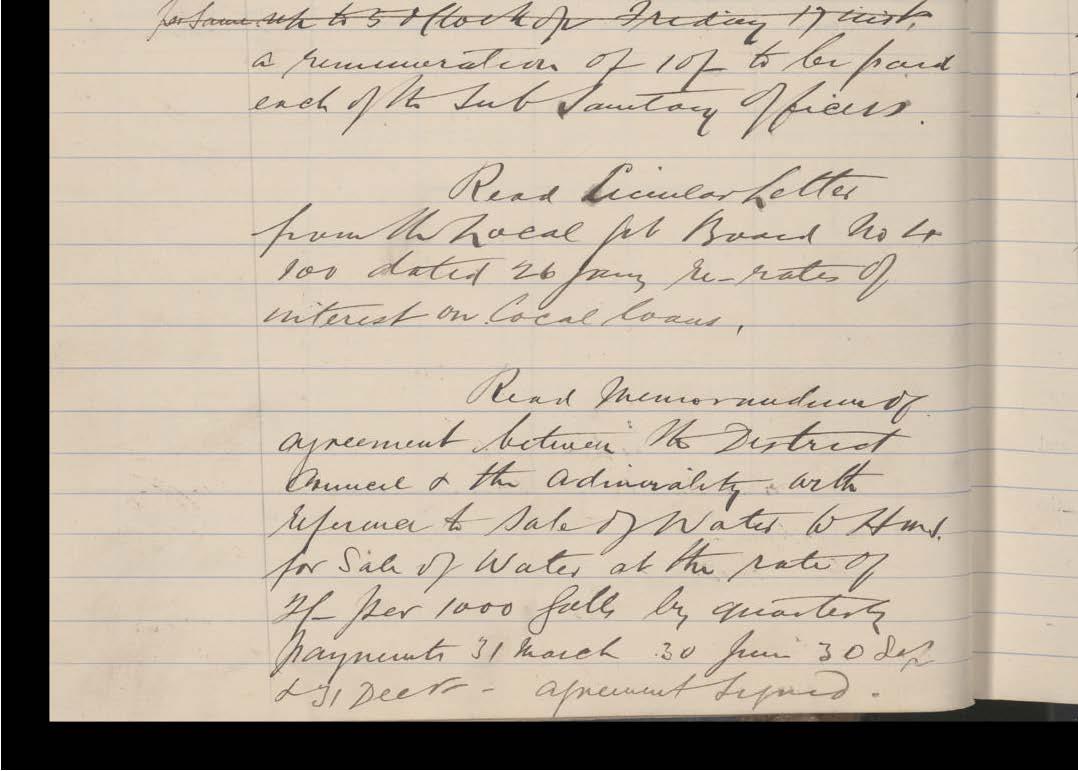 for same up to 5 o'Clock of Friday 17 inst.
a remuneration of 10/- to be paid
each of the Sub Sanitary Officers.
Read Circular Letter
from the Local Gvt Board No 4
100 dated 26 Jany re-rates of
interest on local loans.
Read Memorandum of
agreement between the District
Council & the Admirality with
reference to Sale of Water to
for Sale of Water at the rate of
2/- per 1000 Galls by quarterly
payments 31 March 30 June 30 Sep
& 31 Decr - agreement Signed.